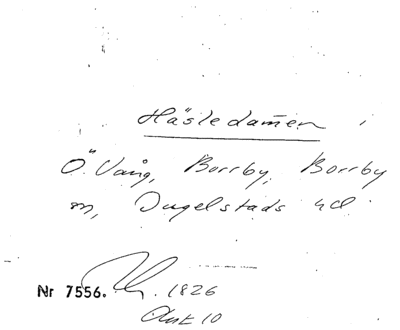 Häsledammen
Ö. Vång, Borrby, Borrby
sn, Ingelstads hd.
Nr 7556. 1826
Ank 10